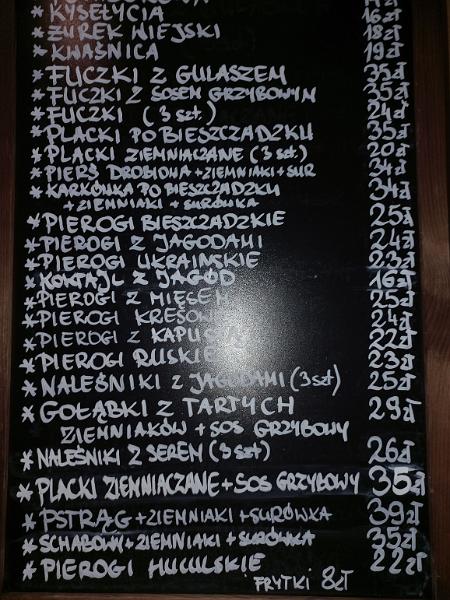 * KYSEŁYCIA 16zł
* ŻUREK WIEJSKI 18zł
* KWAŚNICA 19zł
* FUCZKI Z GULASZEM 35zł
* FUCZKI Z SOSEM GRZYBOWYM 35zł
* FUCZKI (3 szt.) 24zł
* PLACKI PO BIESZCZADZKU 35zł
* PLACKI ZIEMNIACZANE (3 szt.) 20zł
* PIERŚ DROBIOWA + ZIEMNIAKI + SUR 34zł
* KARKÓWKA PO BIESZCZADZKU 34zł
+ ZIEMNIAKI + SURÓWKA
* PIEROGI BIESZCZADZKIE 25zł
* PIEROGI Z JAGODAMI 24zł
* PIEROGI UKRAIŃSKIE 23zł
* KOKTAJL Z JAGÓD 16zł
* PIEROGI Z MIĘSEM 25zł
* PIEROGI 24zł
* PIEROGI Z KAPUSTĄ 22zł
* PIEROGI RUSKIE 23zł
* NALEŚNIKI Z JAGODAMI (3szt) 25zł
* GOŁĄBKI Z TARTYCH 29zł
ZIEMNIAKÓW + SOS GRZYBOWY
* NALEŚNIKI Z SEREM (3 szt) 26zł
* PLACKI ZIEMNIACZANE + SOS GRZYBOWY 35zł
* PSTRĄG + ZIEMNIAKI + SURÓWKA 39zł
* SCHABOWY + ZIEMNIAKI + SURÓWKA 35zł
* PIEROGI HUCULSKIE 22zł
FRYTKI 8zł